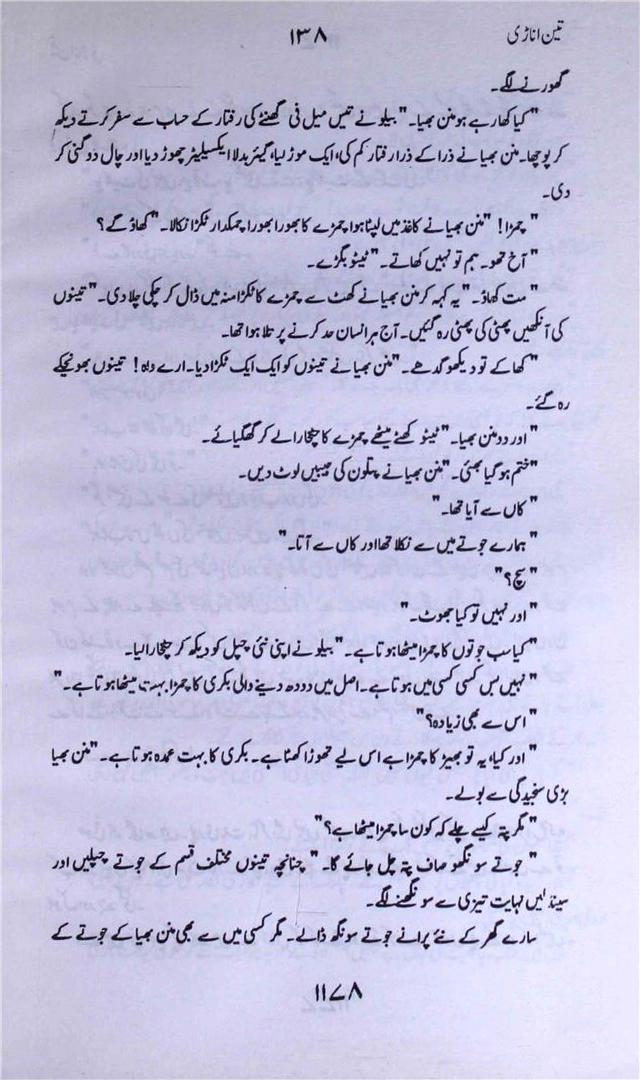 تین اناڑی
۱۳۸
گھورنے لگے۔
" کیا کھا رہے ہو منن بھیا۔" بیلو نے تیس میل فی گھنٹے کی رفتار کے حساب سے سفر کرتے دیکھ
کر پوچھا۔ منن بھیا نے ذرا کے ذرا رفتار کم کی، ایک موڑ لیا، گیئر بدلا ایکسیلیٹر چھوڑ دیا اور چال دوگنی کر
دی۔
" چمڑا! "منن بھیا نے کاغذ میں لپٹا ہوا چمڑے کا بھورا بھورا چمکدار ٹکڑا نکالا۔" کھاؤ گے؟
" آخ تھو۔ ہم تو نہیں کھاتے۔ "ٹیٹو بگڑے۔
" مت کھاؤ۔" یہ کہہ کر منن بھیا نے کھٹ سے چمڑے کا ٹکڑا منہ میں ڈال کر چکی چلا دی۔" تینوں
کی آنکھیں پھٹی کی پھٹی رہ گئیں۔ آج ہر انسان حد کرنے پر تلا ہوا تھا۔
" کھا کے تو دیکھو گدھے۔ "منن بھیا نے تینوں کو ایک ایک ٹکڑا دیا۔ ارے واہ! تینوں بھونچکے
رہ گئے۔
" اور دو منن بھیا۔" ٹیٹو کھٹے میٹھے چمڑے کا چٹخارا لے کر گھگیائے۔
"ختم ہو گیا بھئی۔ "منن بھیا نے پتلون کی جیبیں لوٹ دیں۔
" کاں سے آیا تھا۔"
" ہمارے جوتے میں سے نکلا تھا اور کاں سے آتا۔"
" سچ؟"
" اور نہیں تو کیا جھوٹ۔"
" کیا سب جوتوں کا چمڑا میٹھا ہوتا ہے۔" بیلو نے اپنی نئی چپل کو دیکھ کر چٹخارا لیا۔
" نہیں بس کسی کسی میں ہوتا ہے۔ اصل میں دودھ دینے والی بکری کا چمڑا بہت میٹھا ہوتا ہے۔"
" اس سے بھی زیادہ؟"
" اور کیا، یہ تو بھیڑ کا چمڑا ہے اس لیے تھوڑا کھٹا ہے۔ بکری کا بہت عمدہ ہوتا ہے۔ "منن بھیا
بڑی سنجیدگی سے بولے۔
" مگر پتہ کیسے چلے کہ کون سا چمڑا میٹھا ہے؟"
" جوتے سونگھو صاف پتہ چل جائے گا۔ " چنانچہ تینوں مختلف قسم کے جوتے چپلیں اور
سینڈلیں نہایت تیزی سے سونگھنے لگے۔
سارے گھر کے نئے پرانے جوتے سونگھ ڈالے۔ مگر کسی میں سے بھی منن بھیا کے جوتے کے
۱۱۷۸